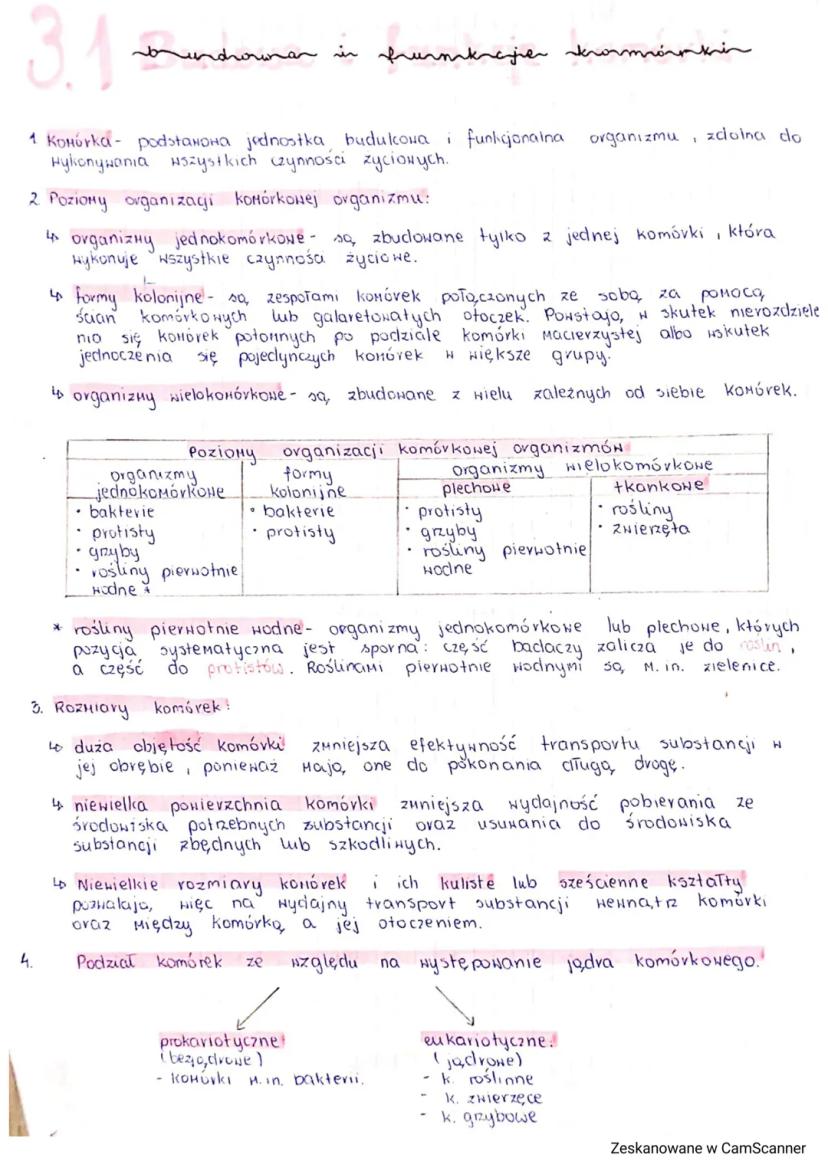 3.1 Budowa i funkcje komórki
1 Komórka - podstawowa jednostka budulcowa i funkcjonalna organizmu, zdolna do
wykonywania wszystkich czynności życiowych.
2. Poziomy organizacji komórkowej organizmu:
↳ organizmy jednokomórkowe - są zbudowane tylko z jednej komórki, która
wykonuje wszystkie czynności życiowe.
↳ formy kolonijne - są zespołami komórek połączonych ze sobą za pomocą
ścian komórkowych lub galaretowatych otoczek. Powstają w skutek nierozdziele
nia się komórek potomnych po podziale komórki macierzystej albo wskutek
jednoczenia się pojedynczych komórek w większe grupy.
↳ organizmy wielokomórkowe - są zbudowane z wielu zależnych od siebie komórek.
Poziomy organizacji komórkowej organizmów
organizmy jednokomórkowe
• bakterie
• protisty
• grzyby
• rośliny pierwotnie
wodne *
formy kolonijne
• bakterie
• protisty
organizmy wielokomórkowe
plechowe
• protisty
• grzyby
• rośliny pierwotnie
wodne
tkankowe
• rośliny
• zwierzęta
* rośliny pierwotnie wodne - organizmy jednokomórkowe lub plechowe, których
pozycja systematyczna jest sporna: część badaczy zalicza je do roślin,
a część do protistów. Roślinami pierwotnie wodnymi są m.in. zielenice.
3. Rozmiary komórek:
↳ duża objętość komórki zmniejsza efektywność transportu substancji w
jej obrębie, ponieważ mają one do pokonania długą drogę.
↳ niewielka powierzchnia komórki zmniejsza wydajność pobierania ze
środowiska potrzebnych substancji oraz usuwania do środowiska
substancji zbędnych lub szkodliwych.
↳ Niewielkie rozmiary komórek i ich kuliste lub sześcienne kształty
pozwalają więc na wydajny transport substancji wewnątrz komórki
oraz między komórką a jej otoczeniem.
4. Podział komórek ze względu na występowanie jądra komórkowego.
prokariotyczne
(bezjądrowe)
- komórki m.in. bakterii.
eukariotyczne:
(jądrowe)
- k. roślinne
- k. zwierzęce
- k. grzybowe
Zeskanowane w CamScanner